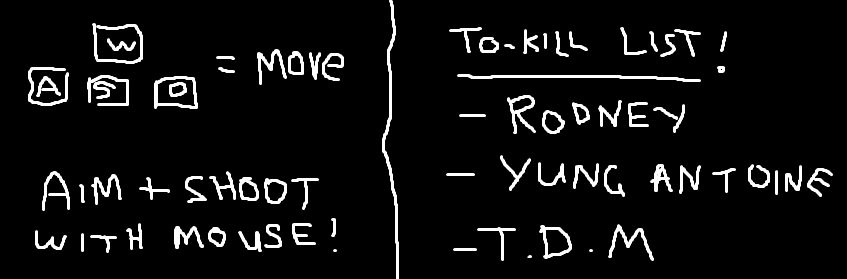 W
A S D = MOVE
AIM + SHOOT
WITH MOUSE!
TO-KILL LIST!
- RODNEY
- YUNG ANTOINE
- T.D.M